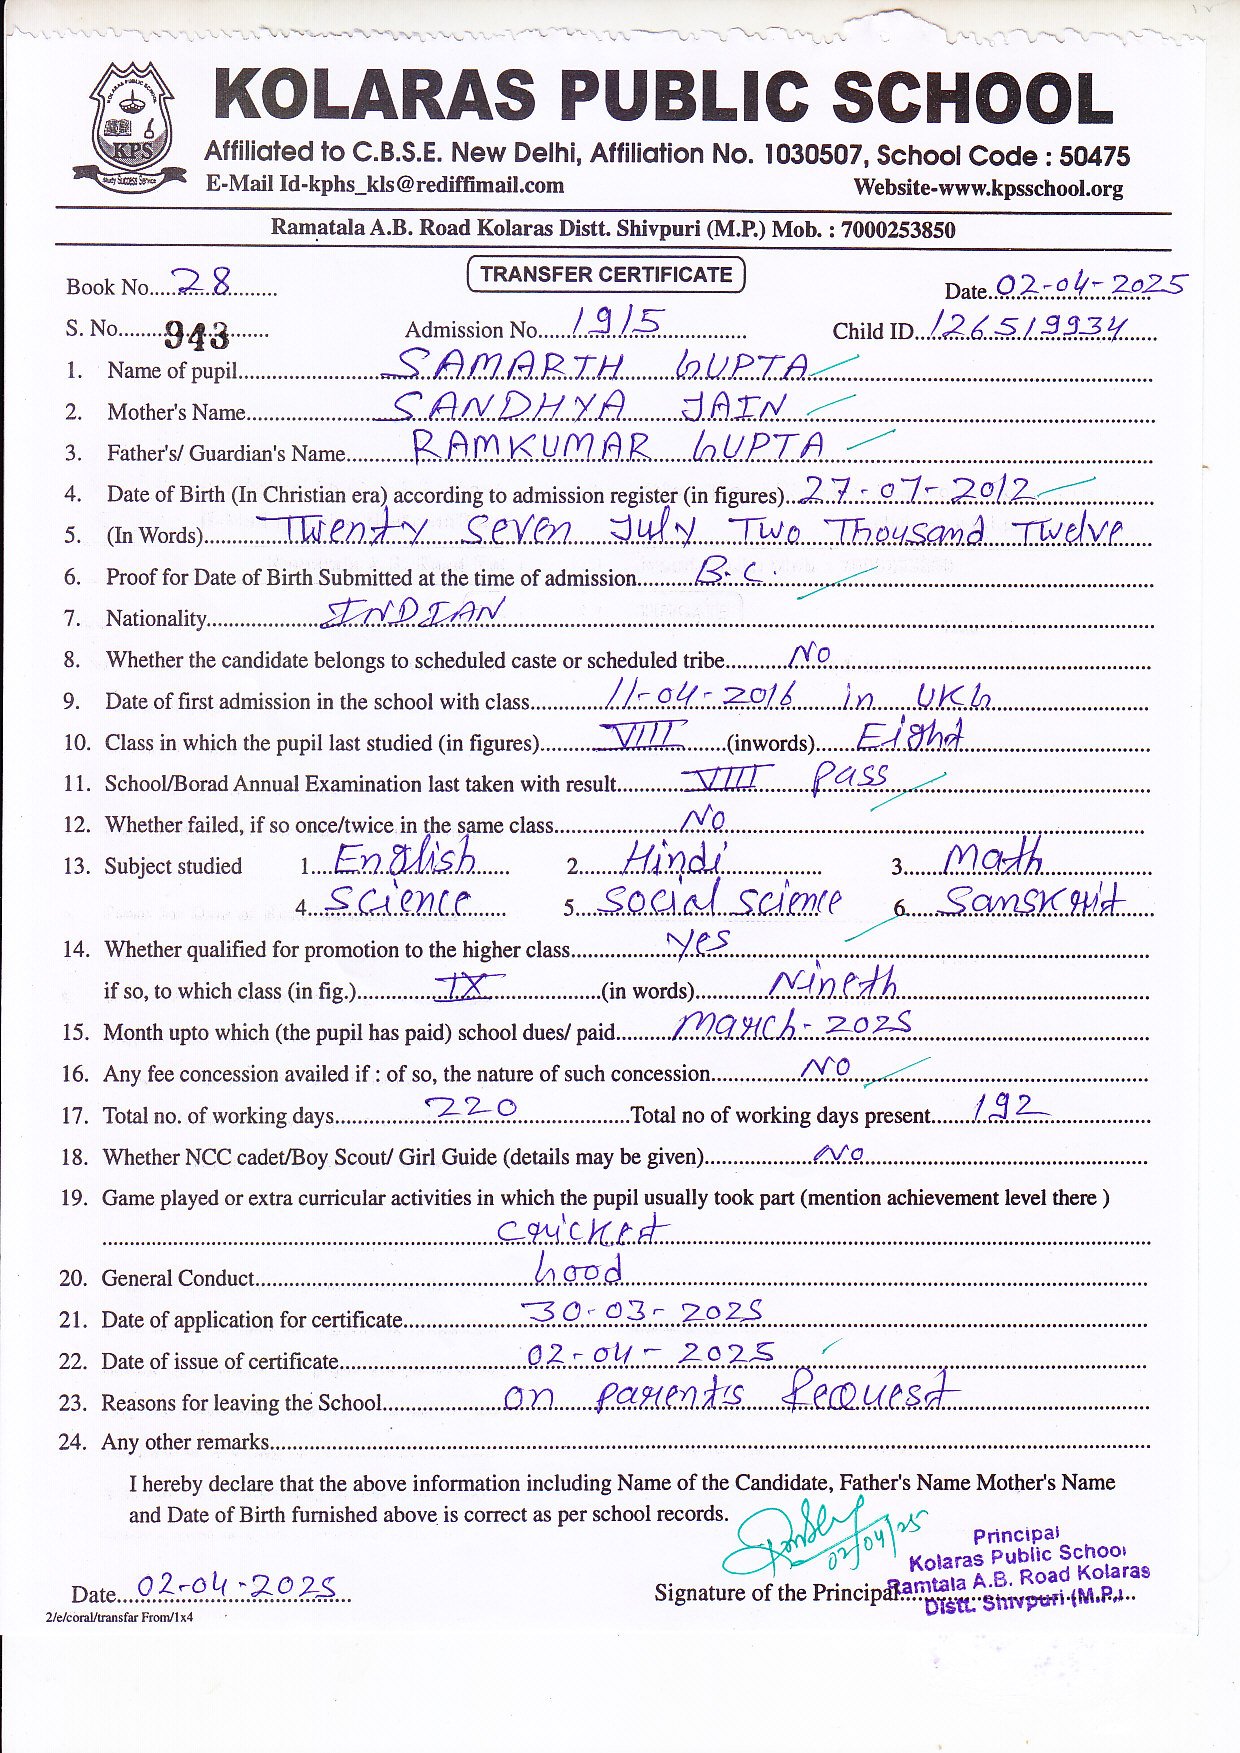 KOLARAS PUBLIC SCHOOL
KOLARAS PUBLIC SCHOOL
KPS
Study Success Service
Affiliated to C.B.S.E. New Delhi, Affiliation No. 1030507, School Code : 50475
E-Mail Id-kphs_kls@rediffimail.com Website-www.kpsschool.org
Ramatala A.B. Road Kolaras Distt. Shivpuri (M.P.) Mob. : 7000253850
TRANSFER CERTIFICATE
Book No. 28 Date. 02-04-2025
S. No. 943 Admission No. 1915 Child ID. 126519934
1. Name of pupil SAMARTH GUPTA
2. Mother's Name SANDHYA JAIN
3. Father's/ Guardian's Name RAMKUMAR GUPTA
4. Date of Birth (In Christian era) according to admission register (in figures) 27-07-2012
5. (In Words) Twenty Seven July Two Thousand Twelve
6. Proof for Date of Birth Submitted at the time of admission B.C.
7. Nationality INDIAN
8. Whether the candidate belongs to scheduled caste or scheduled tribe No
9. Date of first admission in the school with class 11-04-2016 in UKG
10. Class in which the pupil last studied (in figures) VIII (inwords) Eight
11. School/Borad Annual Examination last taken with result VIII Pass
12. Whether failed, if so once/twice in the same class No
13. Subject studied 1. English 2. Hindi 3. Math
4. Science 5. Social science 6. Sanskrit
14. Whether qualified for promotion to the higher class yes
if so, to which class (in fig.) IX (in words) Nineth
15. Month upto which (the pupil has paid) school dues/ paid March-2025
16. Any fee concession availed if : of so, the nature of such concession NO
17. Total no. of working days 220 Total no of working days present 192
18. Whether NCC cadet/Boy Scout/ Girl Guide (details may be given) No
19. Game played or extra curricular activities in which the pupil usually took part (mention achievement level there )
Cricket
20. General Conduct Good
21. Date of application for certificate 30-03-2025
22. Date of issue of certificate 02-04-2025
23. Reasons for leaving the School on parent's Request
24. Any other remarks
I hereby declare that the above information including Name of the Candidate, Father's Name Mother's Name
and Date of Birth furnished above is correct as per school records.
02/04/25
Principal
Kolaras Public School
Date. 02-04-2025 Signature of the Principal Ramtala A.B. Road Kolaras
Distt. Shivpuri (M.P.)
2/e/coral/transfar From/1x4